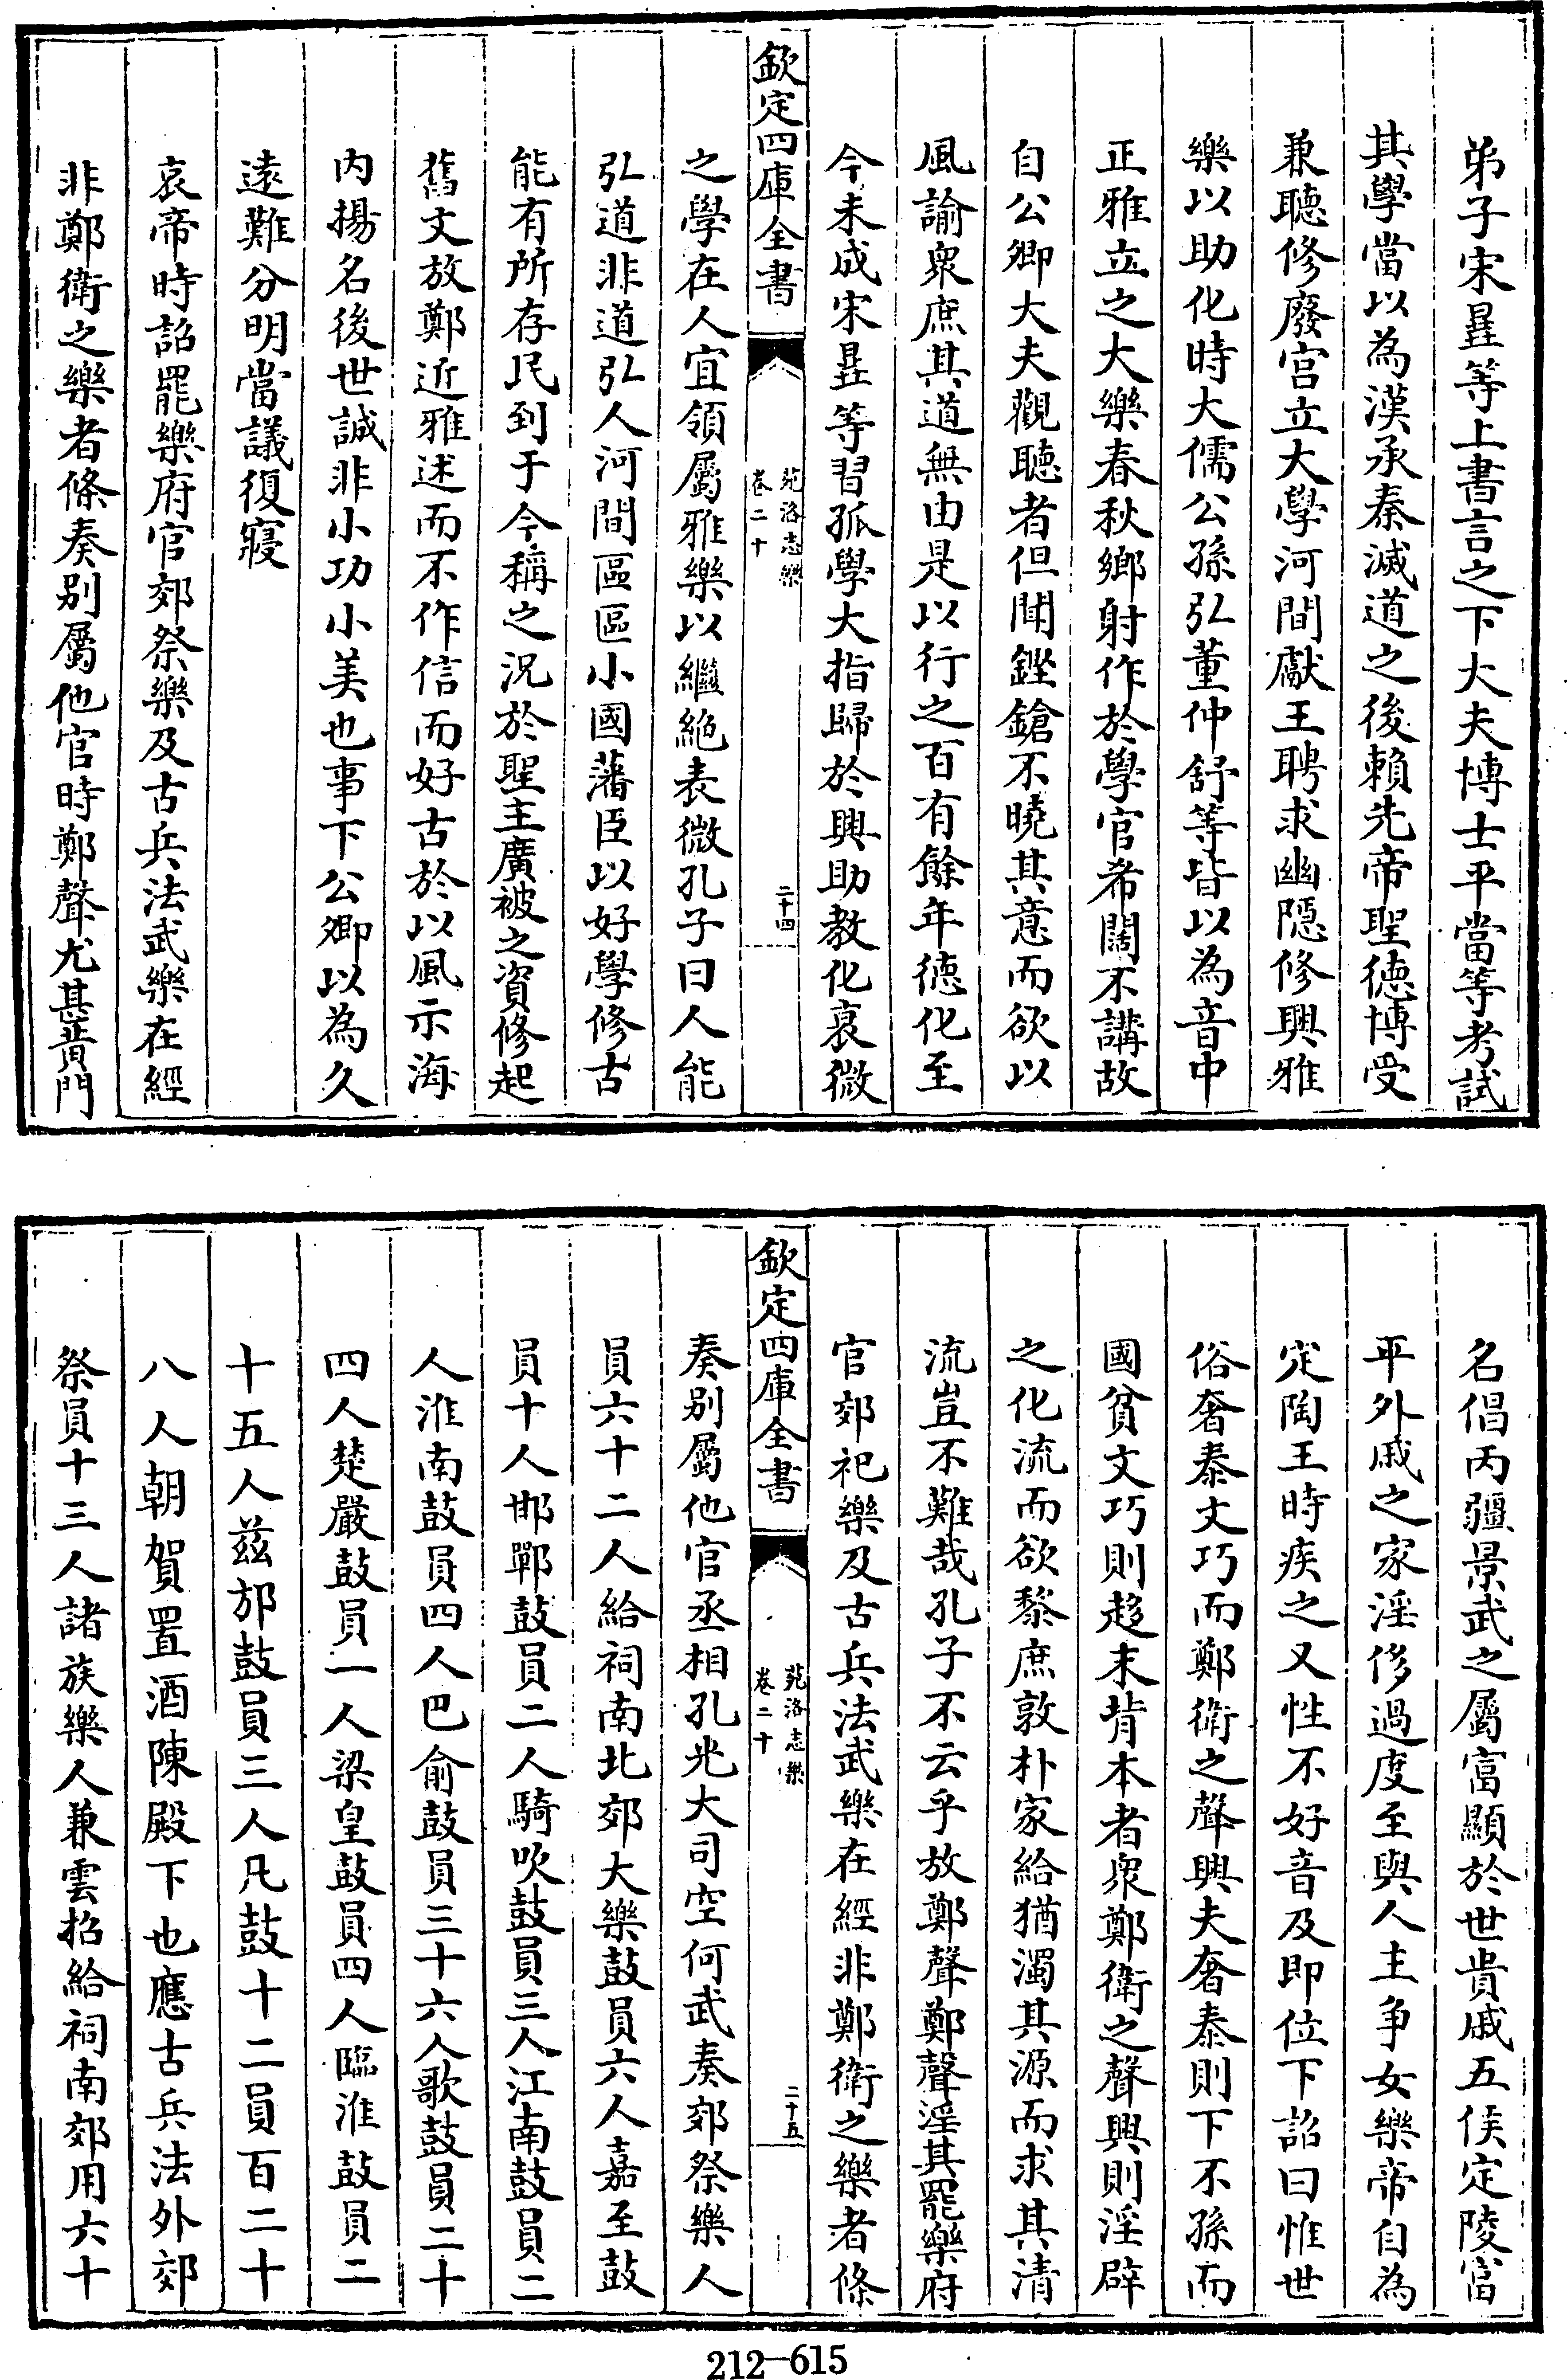 弟子宋㬅等上書言之下大夫博士平當等考試
其學當以為漢承秦滅道之後賴先帝聖德博受
兼聽修廢官立大學河間獻王聘求幽隠修興雅
樂以助化時大儒公孫弘董仲舒等皆以為音中
正雅立之大樂春秋鄉射作於學官希闊不講故
自公卿大夫觀聽者但聞鏗鎗不曉其意而欲以
風諭衆庶其道無由是以行之百有餘年德化至
今未成宋㬅等習孤學大指歸於興助教化衰微
欽定四庫全書
苑洛志樂
卷二十
二十四
之學在人宜領屬雅樂以繼絶表微孔子曰人能
弘道非道弘人河間區區小國藩臣以好學修古
能有所存民到于今稱之況於聖主廣被之資修起
舊文放鄭近雅述而不作信而好古於以風示海
内揚名後世誠非小功小美也事下公卿以為久
逺難分明當議復寢
哀帝時詔罷樂府官郊祭樂及古兵法武樂在經
非鄭衛之樂者條奏别屬他官時鄭聲尤甚黄門
名倡丙彊景武之屬富顯於世貴戚五侯定陵富
平外戚之家淫侈過度至與人主争女樂帝自為
定陶王時疾之又性不好音及即位下詔曰惟世
俗奢泰文巧而鄭衛之聲興夫奢泰則下不孫而
國貧文巧則趍末背本者衆鄭衛之聲興則淫辟
之化流而欲黎庶敦朴家給猶濁其源而求其清
流豈不難哉孔子不云乎放鄭聲鄭聲淫其罷樂府
官郊祀樂及古兵法武樂在經非鄭衛之樂者條
欽定四庫全書
苑洛志樂
卷二十
二十五
奏别屬他官丞相孔光大司空何武奏郊祭樂人
員六十二人給祠南北郊大樂鼓員六人嘉至鼓
員十人邯鄲鼓員二人騎吹鼓員三人江南鼓員二
人淮南鼓員四人巴俞鼓員三十六人歌鼓員二十
四人楚嚴鼓員一人梁皇鼓員四人臨淮鼓員二
十五人兹邡鼓員三人凡鼓十二員百二十
八人朝賀置酒陳殿下也應古兵法外郊
祭員十三人諸族樂人兼雲招給祠南郊用六十
212-615